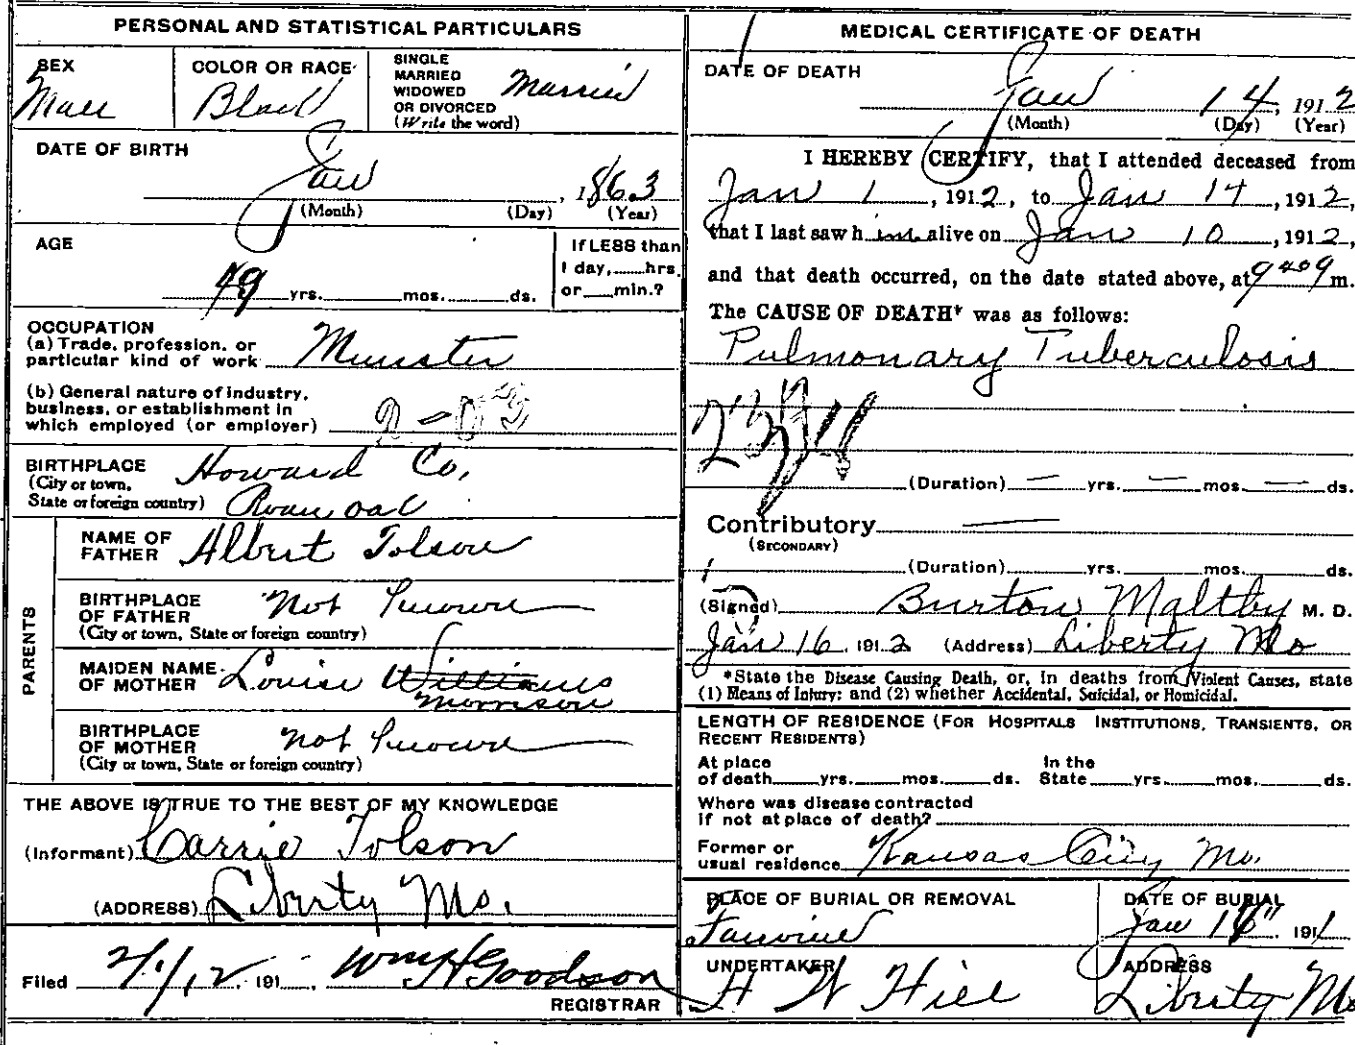 PERSONAL AND STATISTICAL PARTICULARS
SEX
Male
COLOR OR RACE
Black
SINGLE
MARRIED
WIDOWED
OR DIVORCED
(Write the word)
Married
DATE OF BIRTH
Jan, 1863
(Month) (Day) (Year)
AGE
49 yrs. mos. ds.
If LESS than
1 day, hrs.
or min.?
OCCUPATION
(a) Trade, profession, or
particular kind of work Minister
(b) General nature of industry,
business, or establishment in
which employed (or employer)
BIRTHPLACE
(City or town,
State or foreign country)
Howard Co.
PARENTS
NAME OF
FATHER Albert Tolson
BIRTHPLACE
OF FATHER
(City or town, State or foreign country)
Not Known
MAIDEN NAME
OF MOTHER Louise Williams
Morrison
BIRTHPLACE
OF MOTHER
(City or town, State or foreign country)
Not Known
THE ABOVE IS TRUE TO THE BEST OF MY KNOWLEDGE
(Informant) Carrie Tolson
(ADDRESS) Liberty Mo.
Filed 2/1/12, 191, Wm H Goodson
REGISTRAR
MEDICAL CERTIFICATE OF DEATH
DATE OF DEATH
Jan 14, 1912
(Month) (Day) (Year)
I HEREBY CERTIFY, that I attended deceased from
Jan 1, 1912, to Jan 14, 1912,
that I last saw him alive on Jan 10, 1912,
and that death occurred, on the date stated above, at m.
The CAUSE OF DEATH* was as follows:
Pulmonary Tuberculosis
(Duration) — yrs. — mos. — ds.
Contributory —
(SECONDARY)
(Duration) yrs. mos. ds.
(Signed) Burton Maltby M. D.
Jan 16 1912 (Address) Liberty Mo
*State the Disease Causing Death, or, in deaths from Violent Causes, state
(1) Means of Injury; and (2) whether Accidental, Suicidal, or Homicidal.
LENGTH OF RESIDENCE (FOR HOSPITALS INSTITUTIONS, TRANSIENTS, OR
RECENT RESIDENTS)
At place
of death yrs. mos. ds.
In the
State yrs. mos. ds.
Where was disease contracted
if not at place of death?
Former or
usual residence Kansas City Mo.
PLACE OF BURIAL OR REMOVAL
Fairview
DATE OF BURIAL
Jan 16", 191
UNDERTAKER
H W Hill
ADDRESS
Liberty Mo